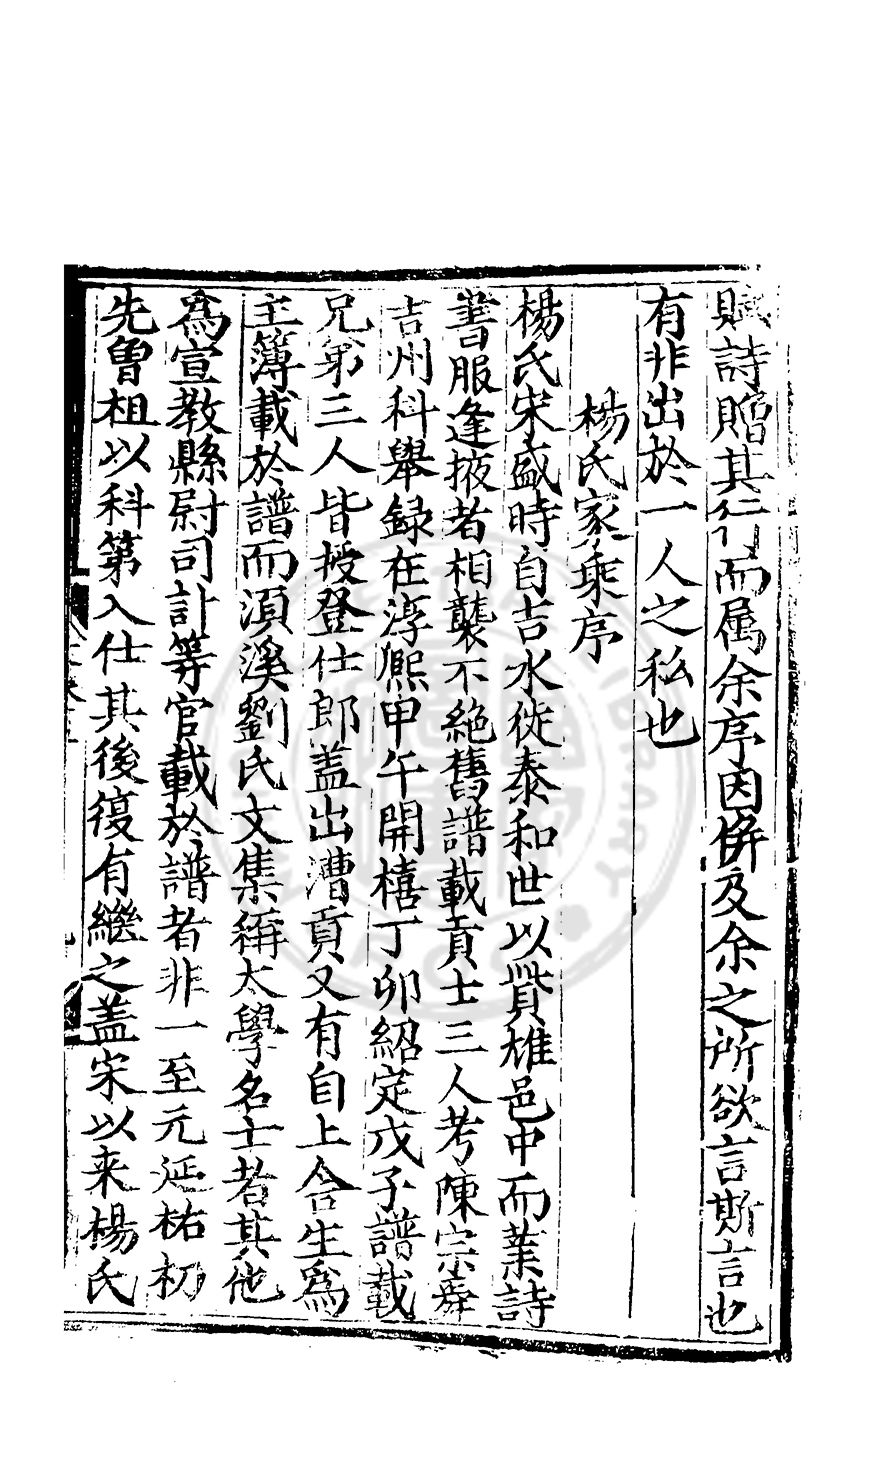 賦詩贈其行而属余序因併及余之所欲言斯言也
有非出於一人之私也
楊氏家乘序
楊氏宋盛時自吉水徙泰和世以貲雄邑中而業詩
書服逢掖者相襲不絶舊譜載貢士三人考陳宗舜
吉州科舉録在淳熈甲午開禧丁卯紹定戊子譜載
兄第三人皆授登仕郎盖出漕貢又有自上舍生爲
主簿載於譜而湏溪劉氏文集稱太學名士者其他
爲宣教縣尉司計等官載於譜者非一至元延祐初
先曾祖以科第入仕其後復有繼之盖宋以来楊氏